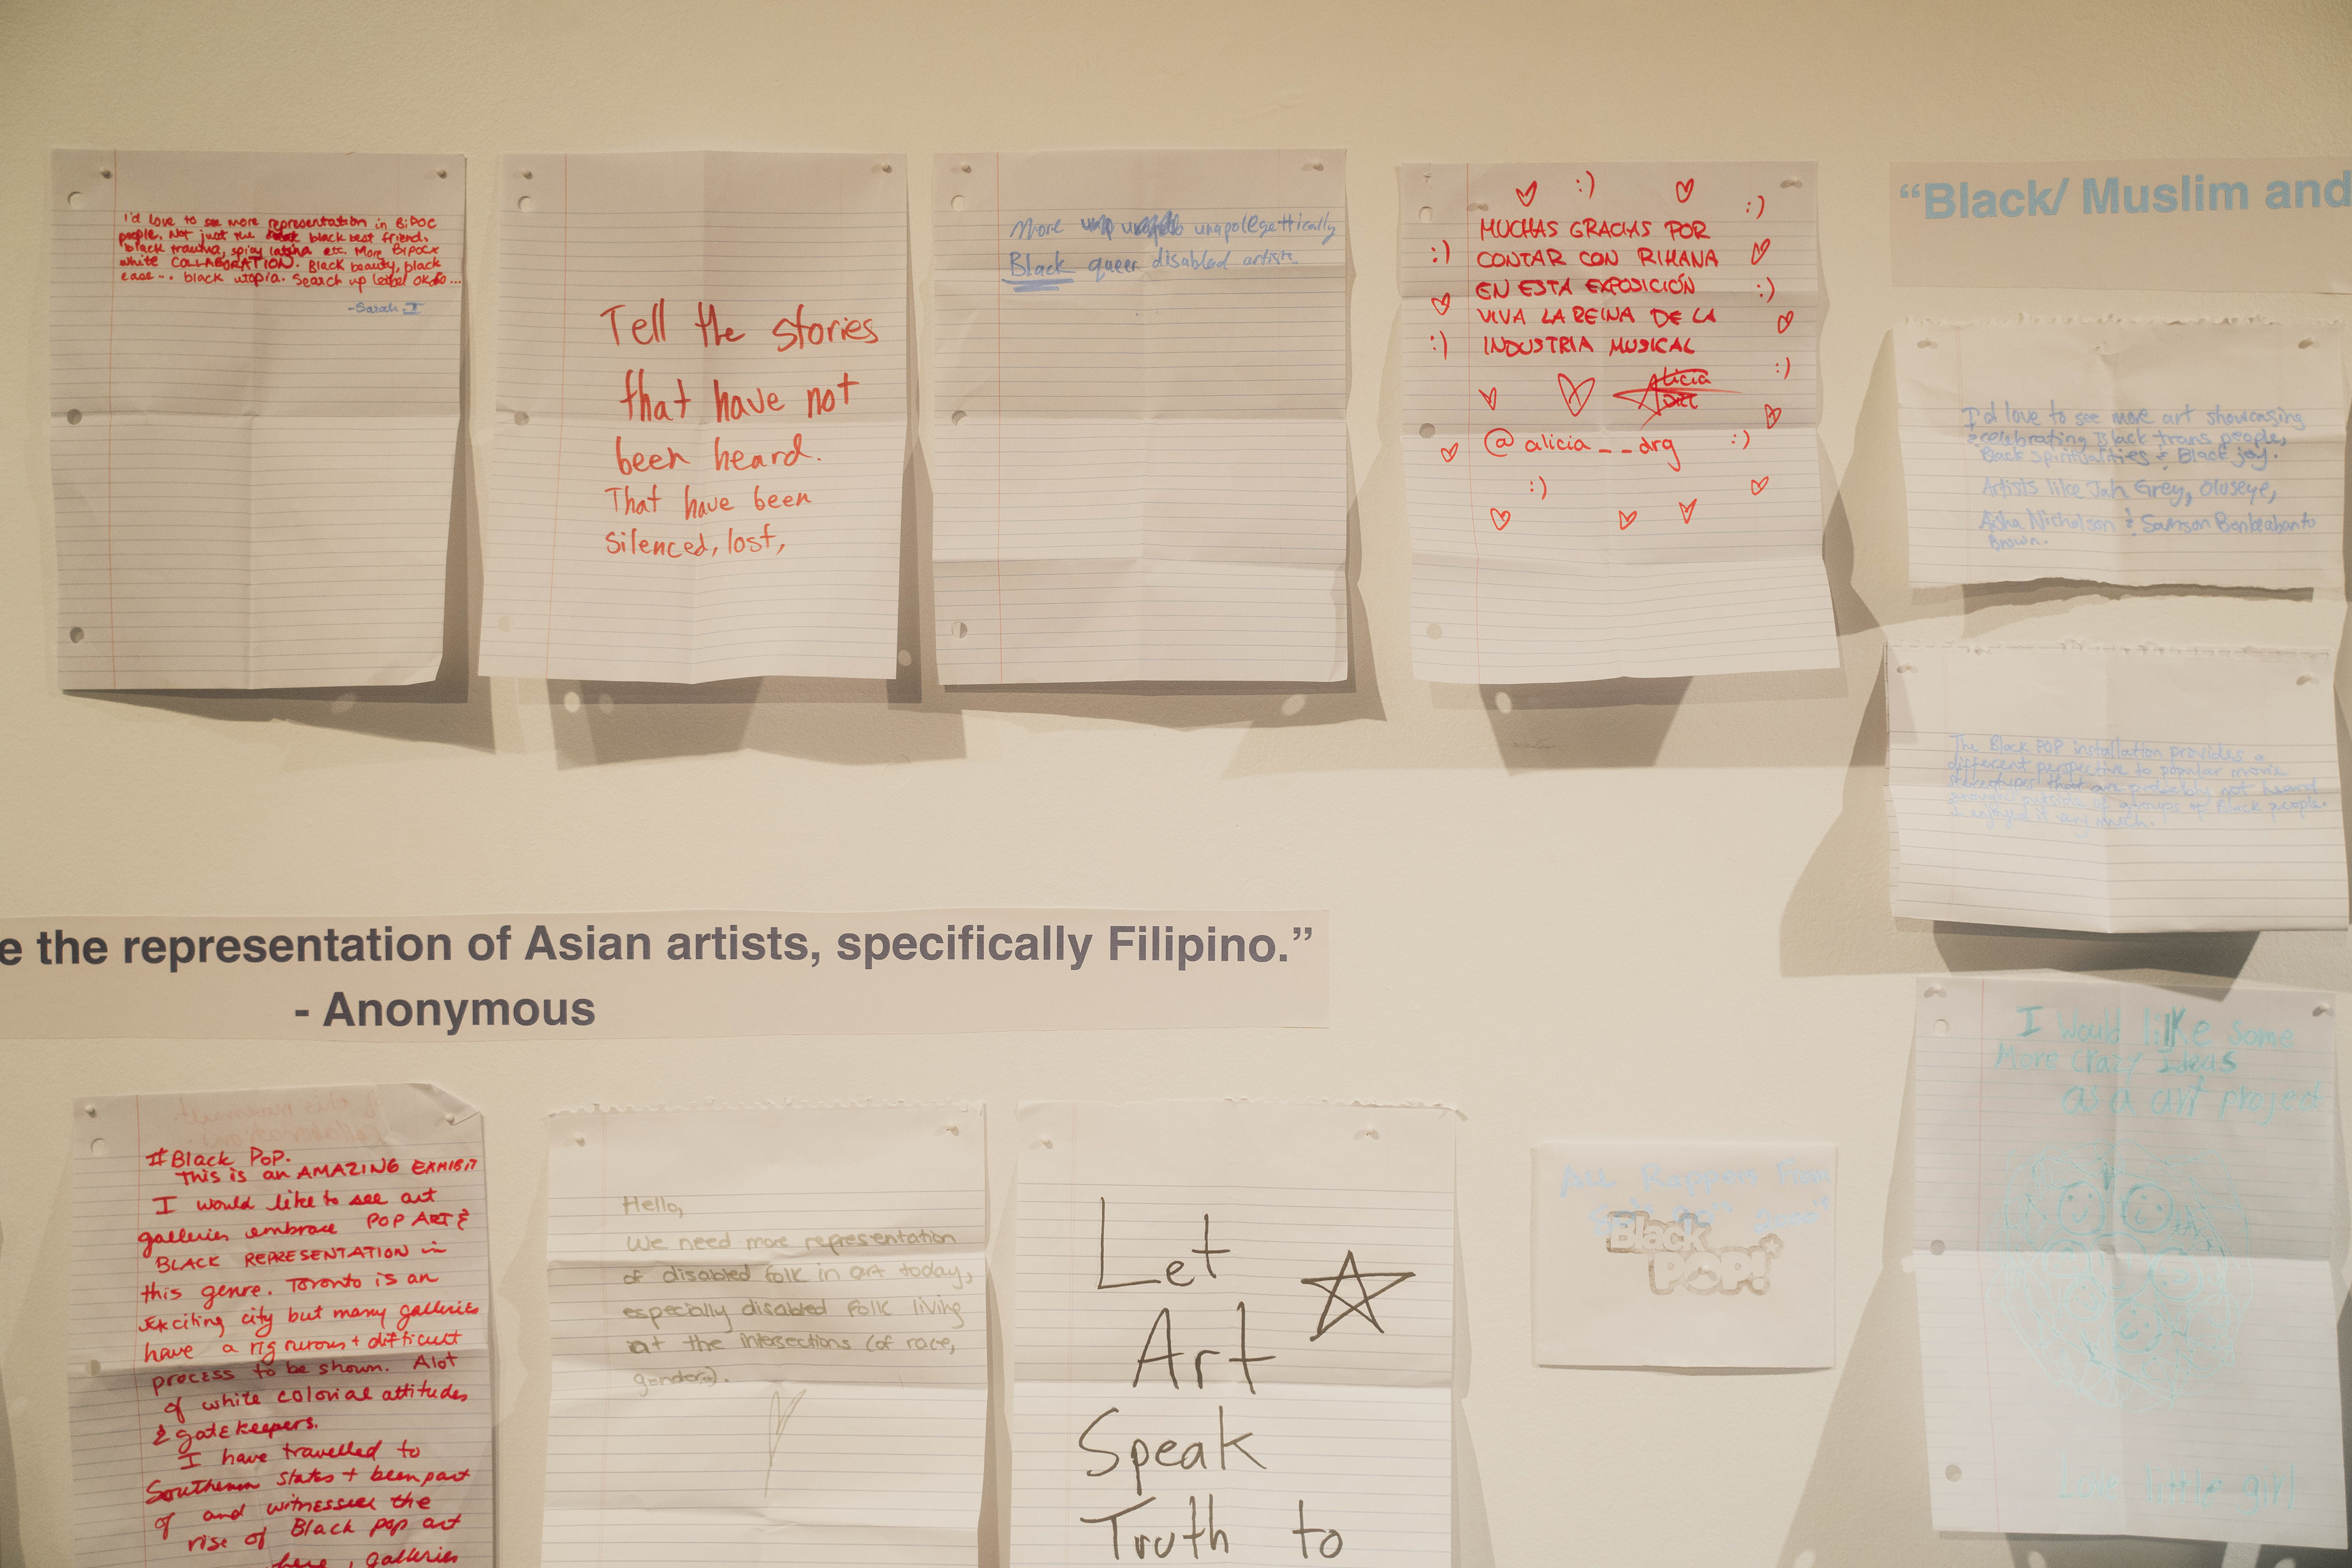 I'd love to see more representation in BiPOC
people. Not just the black best friend,
black trauma, spicy latina etc. More BIPOC x
white COLLABORATION. Black beauty, black
ease... black utopia. Search up leabel okafo...
-Sarah I
Tell the stories
that have not
been heard.
That have been
silenced, lost,
More unapologettically
Black queer disabled artists
MUCHAS GRACIAS POR
CONTAR CON RIHANA
EN ESTA EXPOSICIÓN
VIVA LA REINA DE LA
INDUSTRIA MUSICAL
Alicia
@alicia__drg
“Black/ Muslim and
I'd love to see more art showcasing
& celebrating Black trans people,
Black spiritualities & Black joy.
Artists like Jah Grey, Oluseye,
Aisha Nicholson & Samson Bonkeabanto
Brown.
The Black POP installation provides a
different perspective to popular movie
stereotypes that are probably not heard
enough outside of groups of Black people.
I enjoyed it very much.
e the representation of Asian artists, specifically Filipino.”
- Anonymous
#Black PoP.
This is an AMAZING EXHIBIT
I would like to see art
galleries embrace POP ART &
BLACK REPRESENTATION in
this genre. Toronto is an
exciting city but many galleries
have a rigurous + difficult
process to be shown. Alot
of white colonial attitudes
& gatekeepers.
I have travelled to
Southern states + been part
of and witnessed the
rise of Black pop art
here, galleries
Hello,
We need more representation
of disabled folk in art today,
especially disabled folk living
at the intersections (of race,
gender).
Let
Art
Speak
Truth to
All Rappers From
Black
POP!
I Would like Some
More Crazy Ideas
as a art project
Love little girl